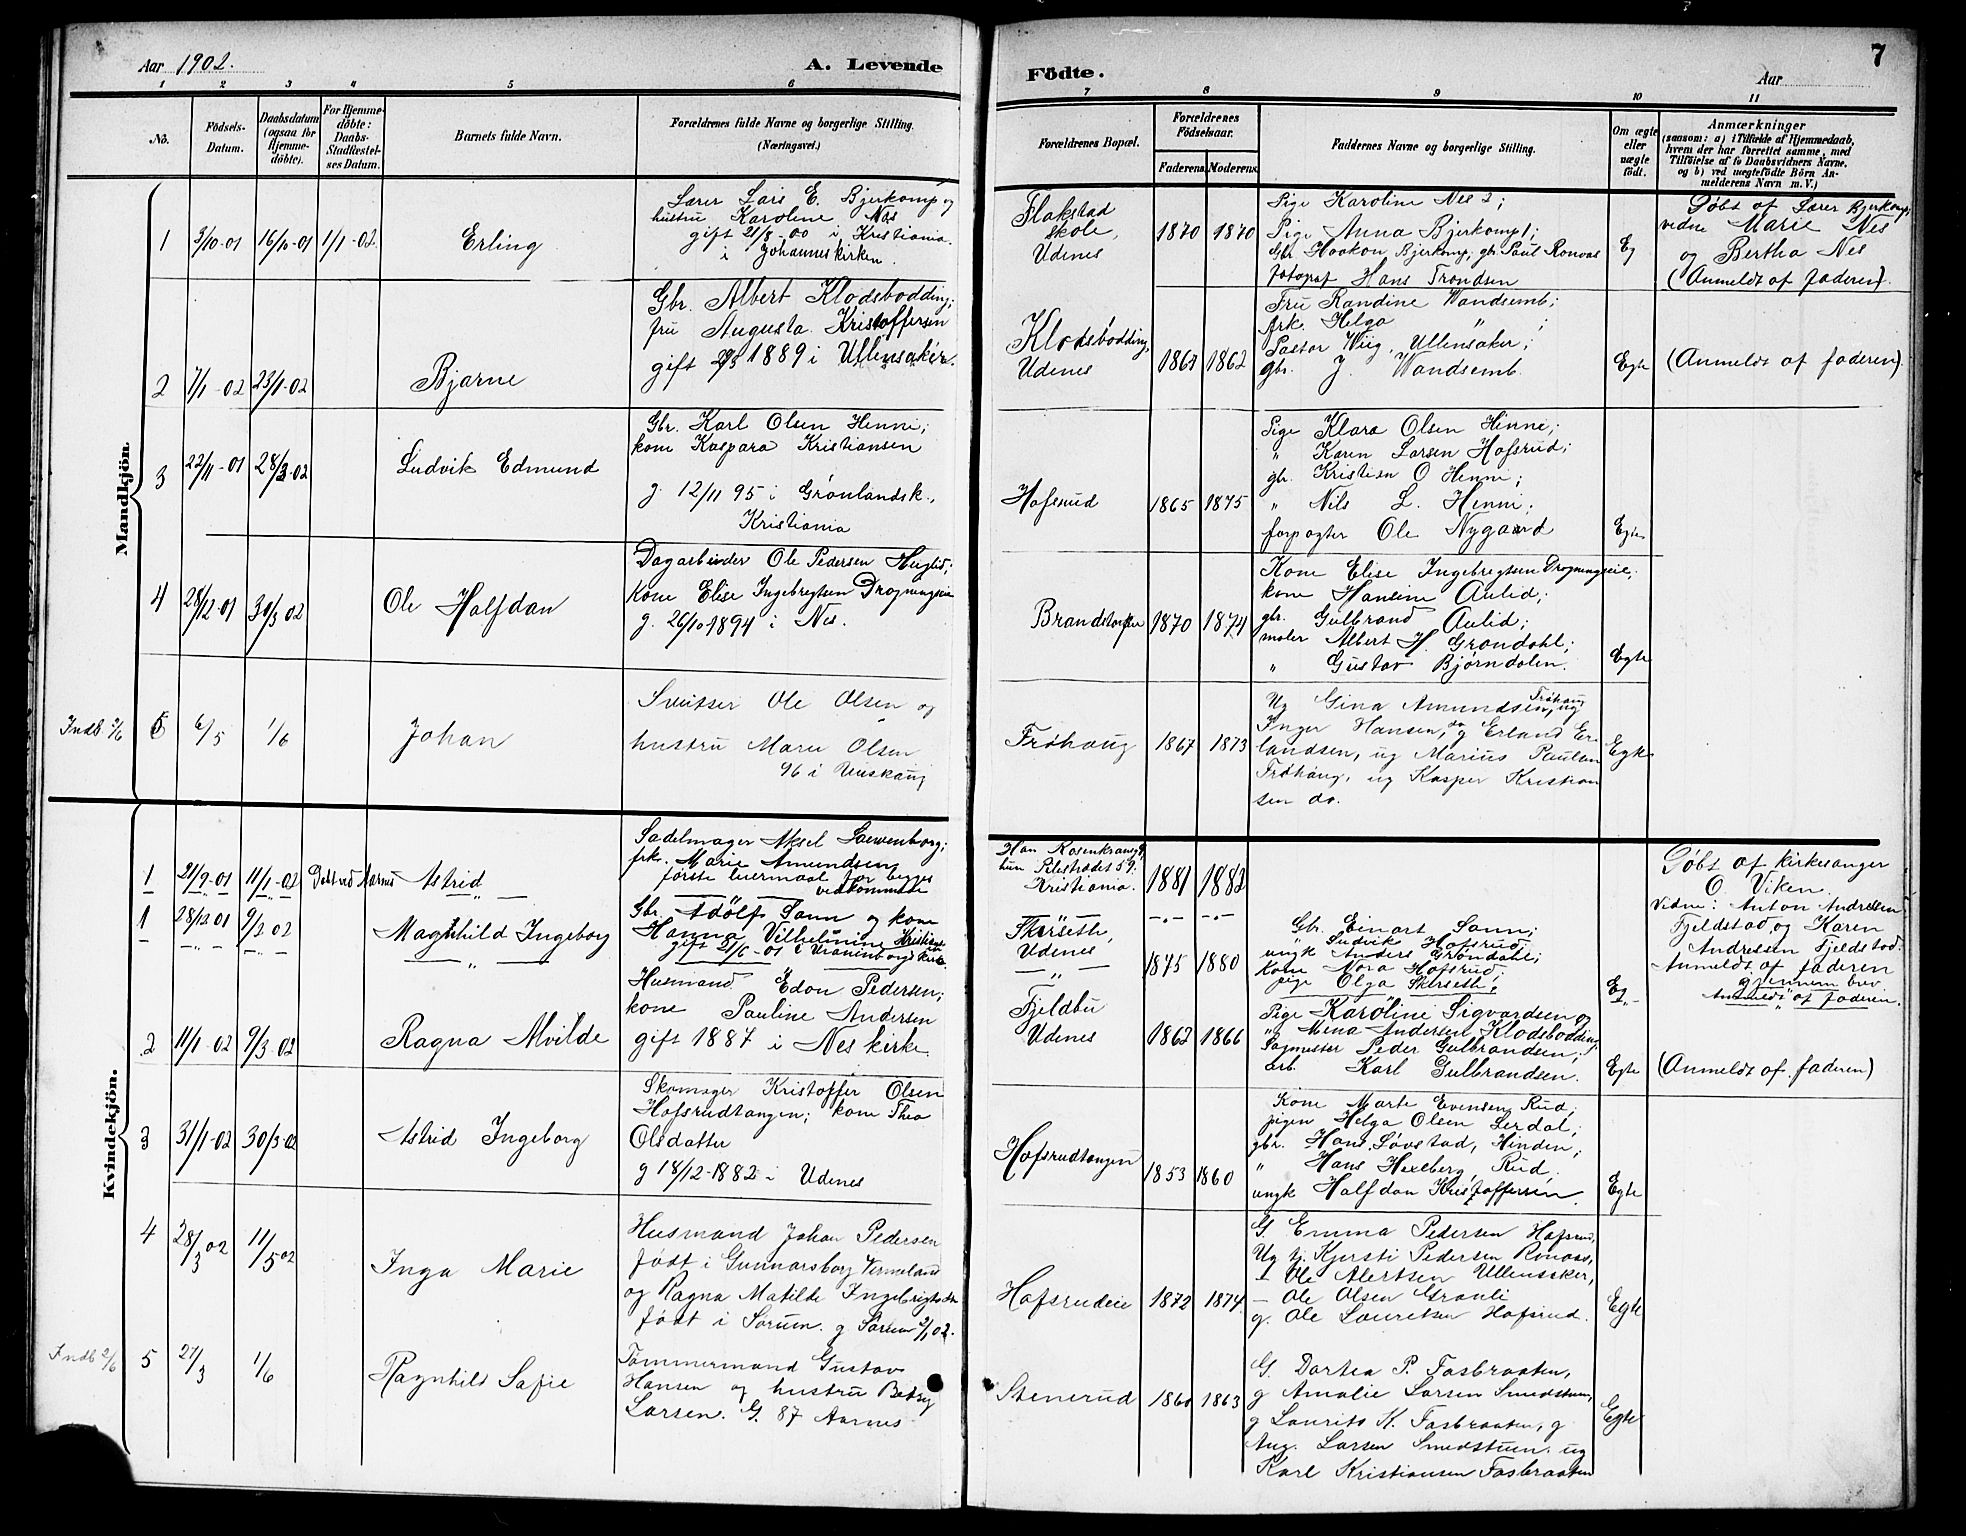 Aar 1902.
A. Levende
1 2 3 4 5 6
No.
Födsels-
Datum.
Daabsdatum
(ogsaa for
Hjemme-
döbte).
For Hjemme-
döbte:
Daabs-
Stadfæstel-
ses Datum.
Barnets fulde Navn.
Forældrenes fulde Navne og borgerlige Stilling.
(Næringsvei.)
Mandkjön.
1 3/10-01 16/10-01 1/1-02. Erling
Lærer Lars E. Bjerkomp og
hustru Karoline Nes
gift 21/8-00 i Kristiania.
i Johanneskirken.
2 7/1-02 23/1-02 Bjarne
Gbr. Albert Klodsbødding;
fru Augusta Kristoffersen
gift 1889 i Ullensaker.
3 22/11-01 28/3-02 Ludvik Edmund
Gbr. Karl Olsen Henni;
kone Kaspara Kristiansen
g. 12/11 95 i Grønlandsk.,
Kristiania
4 28/12-01 30/3 02 Ole Halfdan
Dagarbeider Ole Pedersen Huglid;
kone Elise Ingebregtsen Drogningseie
g. 26/10 1894 i Nes.
Indb. 2/6 5 6/5 1/6 Johan
Sveitser Ole Olsen og
hustru Marie Olsen
96 i
Kvindekjön.
1 21/9-01 11/1-02 Astrid
Sadelmager Aksel Løevenborg;
frk. Marie Amundsen
første leiermaal for begges
vedkommende
1 28/12 01 9/2 02 Magnhild Ingeborg
Gbr. Adolf Sann og kone
Hanna Vilhelmine Kristiansen
gift 21/6-01 i Uranienborg kirke.
2 11/1-02 9/3-02 Ragna Alvilde
Husmand Edon Pedersen;
kone Pauline Andersen
gift 1887 i Nes kirke.
3 31/1-02 30/3-02 Astrid Ingeborg
Skomager Kristoffer Olsen
Hofsrudtangen; kone Thea
Olsdatter
g 18/12-1882 i Udenes
4 28/3 02 11/5 02 Inga Marie
Husmand Johan Pedersen
født i Gunnarsborg Vermeland
og Ragna Matilde Ingebrigtsdtr
født i Sørum. g Sørum 2/1 02.
Indb 2/6 5 27/3 1/6 Ragnhild Safie
Tømmermand Gustav
Hansen og hustru Betsy
Larsen. G. 87 Aarnes
7
Födte.
Aar
7 8 9 10 11
Forældrenes Bopæl.
Forældrenes
Födselsaar.
Faderens Moderens
Faddernes Navne og borgerlige Stilling.
Om ægte
eller
uægte
födt.
Anmærkninger
(saasom: a) i Tilfælde af Hjemmedaab,
hvem der har forrettet samme, med
Tilföielse af to Daabsvidners Navne,
og b) ved uægtefödte Börn An-
melderens Navn m. V.)
Flakstad
skole,
Udenes
1870 1870
Pige Karoline Nes 2;
Pige Anna Bjerkomp 1;
Gbr Haakon Bjerkomp; gbr. Paul Ronvas
fotograf Hans Trondsen
Eg
Døbt af Lærer Bjerkomp,
vedne Marie Nes
og Bertha Nes
(Anmeldt af faderen).
Klodsbødding,
Udenes
1867 1862
Fru Randine Wandsemb;
frk. Helga " ;
Pastor Wiig, Ullensaker;
gbr. J. Wandsemb.
Egte
(Anmeldt af faderen).
Hofsrud
1865 1875
Pige Klara Olsen Hinne;
" Karen Larsen Hofsrud;
gbr. Kristian O Henni;
" Nils L. Henni;
forpagter Ole Nygaard
Egte
1870 1874
Kone Elise Ingebregtsen Drogningseie;
kone Hansine Aulid;
gbr. Gulbrand Aulid;
maler Albert H. Grøndahl;
" Gustav Bjørndalen.
Egte
Frøhaug
1867 1873
Ug Gina Amundsen, Frøhaug ug
Inger Hansen, do g Erland Er-
landsen, ug Marius Paulsen
Frøhaug, ug Kasper Kristian
sen do.
Egte
Han Rosenkransg.
hun Pilestrædet 59.
Kristiania.
1881 1882
Døbt af kirkesanger
O. Viken.
Vidne: Anton Andresen
Fjeldstad og Karen
Andresen Fjeldstad.
Anmeldt af faderen
gjennem brev.
Skirseth,
Udenes
1875 1880
Gbr. Einart Sann;
" Ludvik Hofsrud;
ungk Anders Grøndahl;
kone Nora Hofsrud;
pige Olga Skirseth;
Eg
Anmeldt af faderen.
Fjeldbu
Udenes
1862 1866
Pige Karoline Sigvardsen og
" Mina Andersen Klodsbødding;
Sagmester Peder Gulbrandsen;
arb. Karl Gulbrandsen.
Egte
(Anmeldt af faderen)
Hofsrudtangen
1853 1860
Kone Marte Evensen Rud;
pigen Helga Olsen Lerdal;
gbr. Hans Løvstad, Hinden;
" Hans Hexeberg, Rud.
ungk Halfdan Kristoffersen.
Egte
Hofsrudeie
1872 1874
G. Emma Pedersen Hofsrud,
Ug tj. Kjersti Pedersen Ronaas,
Ole Alertsen Ullensaker,
— Ole Olsen Granli
g. Ole Lauretsen Hofsrud.
Egte
Stenerud
1860 1863
G. Dortea P. Fasbraaten,
g Amalie Larsen Smedstuen,
g Laurits K. Fasbraaten, g
Aug. Larsen Smedstuen. ug
Karl Kristiansen Fasbraaten
Egte